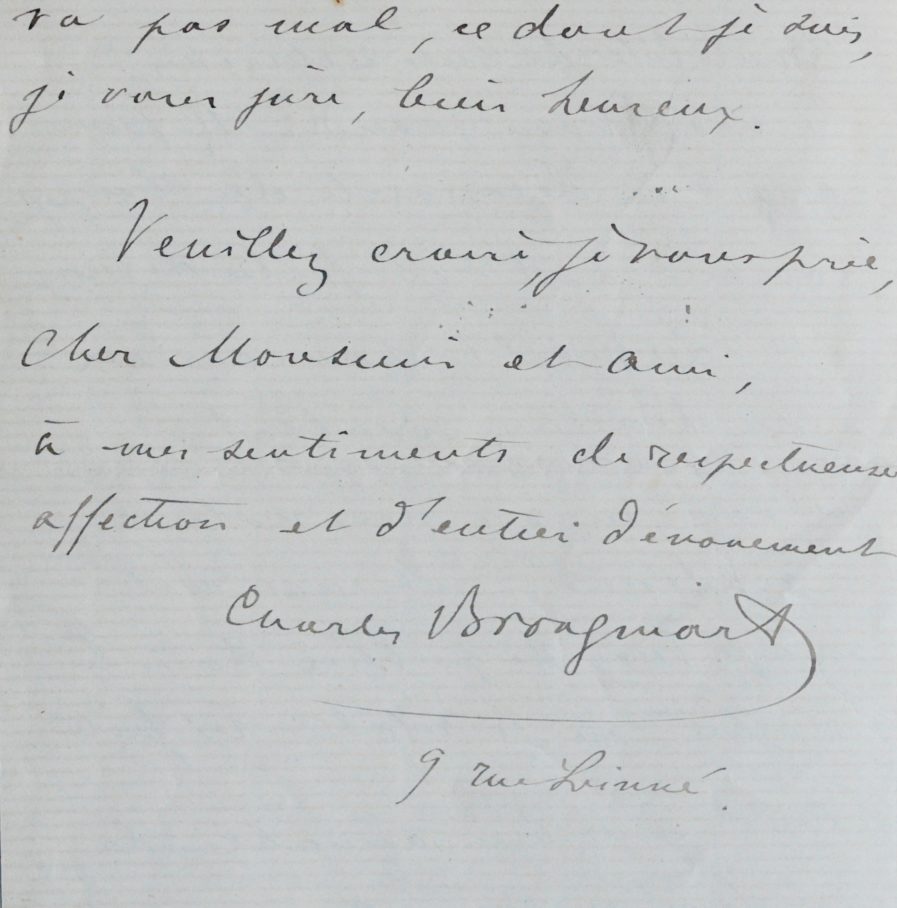 va pas mal, ce dont je suis,
je vous jure, bien heureux.
Veuillez croire, je vous prie,
Cher Monsieur et ami,
à mes sentiments de respectueuse
affection et d'entier dévouement
Charles Brongniart
9 rue Linné.